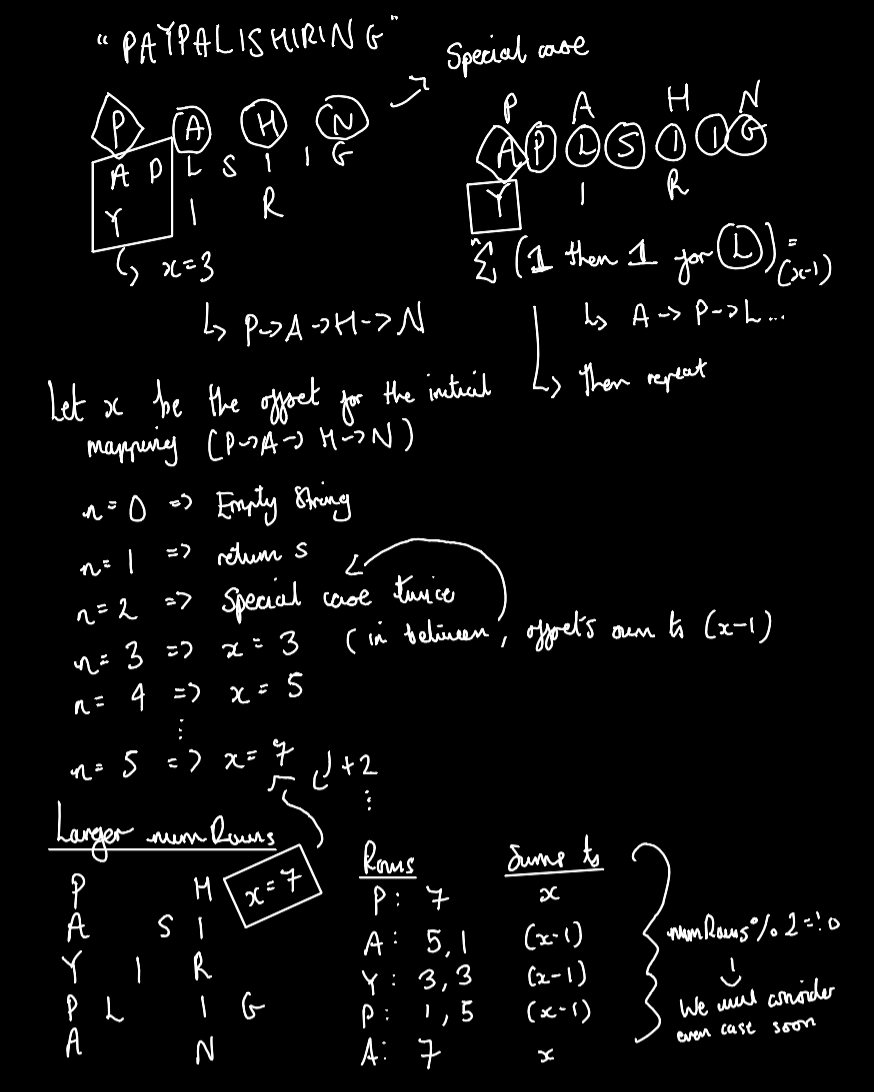 "PAYPALISHIRING"
Special case
P A H N
A P L S I I G
Y I R
↳ x=3
↳ P->A->H->N
P A H N
A P L S I I G
Y I R
Σ (1 then 1 for L) = (x-1)
↳ A -> P->L...
↳ Then repeat
Let x be the offset for the initial
mapping (P->A-> H->N)
n=0 => Empty String
n=1 => return s
n=2 => Special case twice
(in between, offsets sum to (x-1)
n=3 => x=3
n=4 => x=5
⋮
n=5 => x=7 +2
⋮
Larger numRows
P H
A S I
Y I R
P L I G
A N
x=7
Rows Sums to
P: 7 x
A: 5,1 (x-1)
Y: 3,3 (x-1)
P: 1,5 (x-1)
A: 7 x
numRows % 2 =!0
↓
We must consider
even case soon